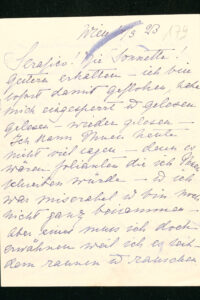 Wien 1/3 23
179
Serafico! Die Sonette!
gestern erhalten – ich bin
sofort damit geflohen, habe
mich eingesperrt & gelesen
gelesen wieder gelesen –
Ich kann Ihnen heute
nicht viel sagen – denn es
wären folianten die ich Ihnen
schreiben würde – & ich
war miserabel & bin noch
nicht ganz beisammen –
aber eines muss ich doch
erwähnen weil ich es seit-
dem raunen & rauschen